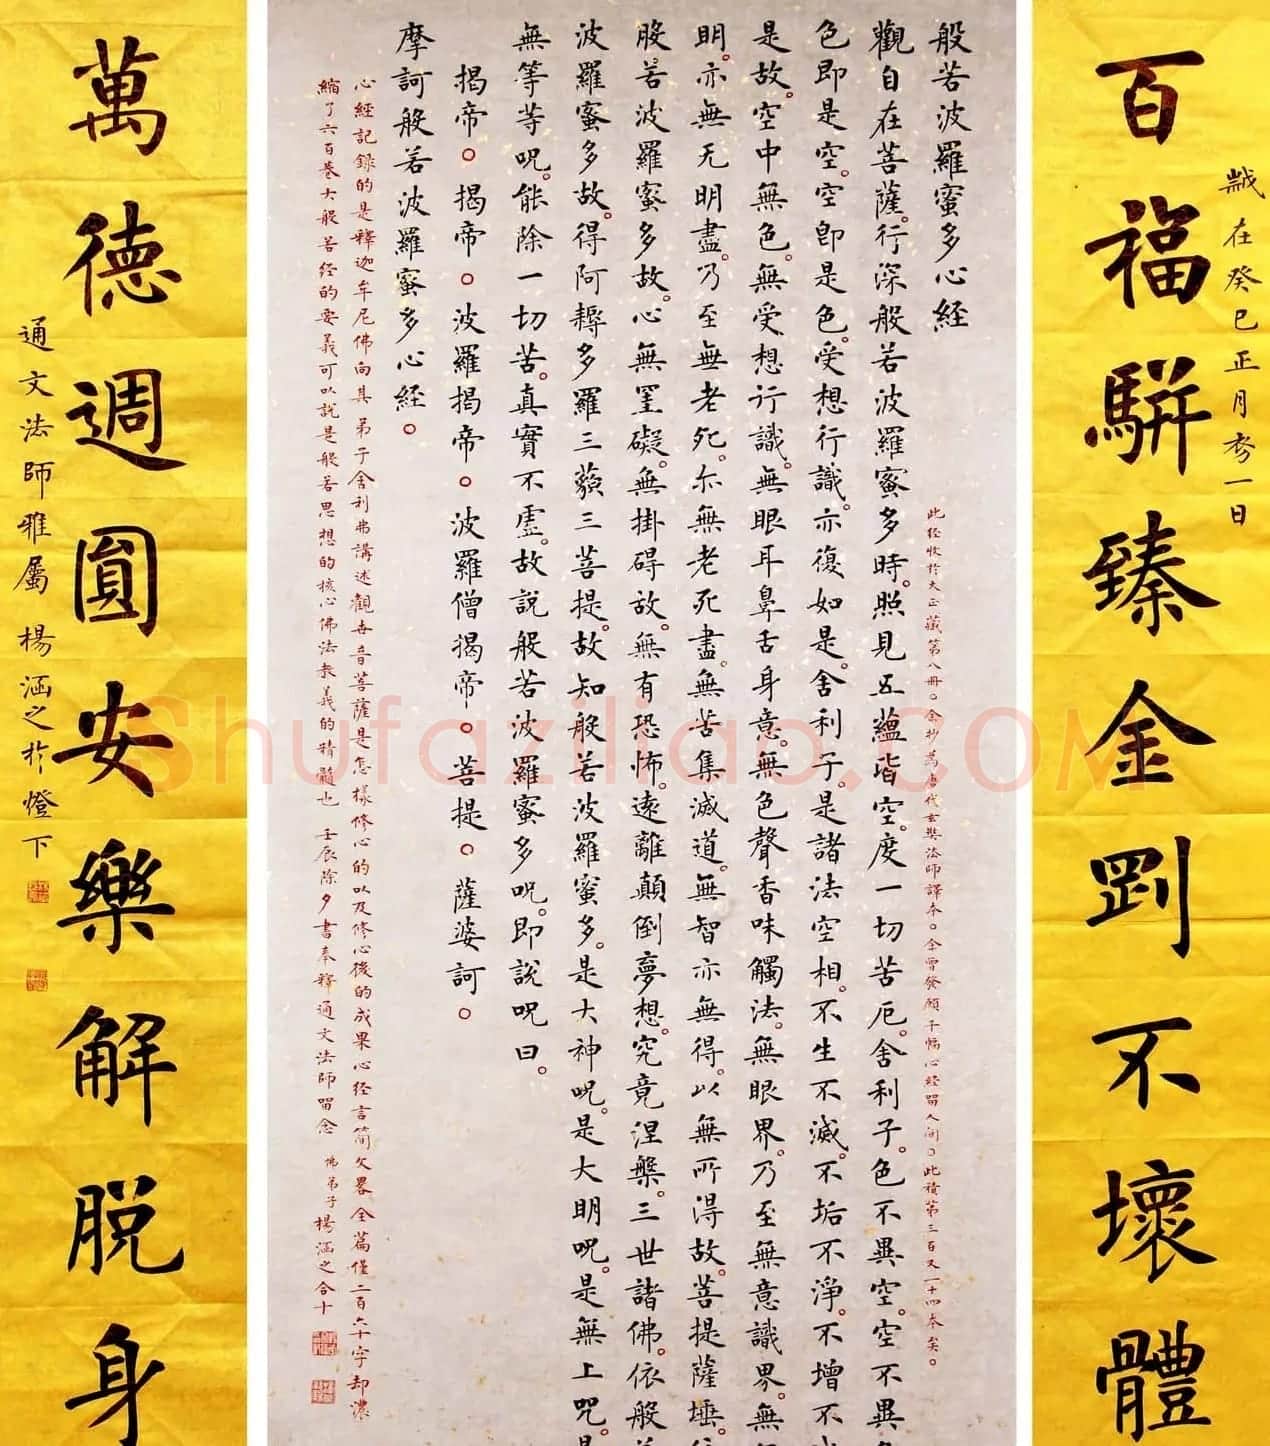 歲在癸巳正月
一日
百福駢臻金剛不壞體
般若波羅蜜多心經
此经收於大正藏第八冊。余抄為唐代玄奘法師譯本。余曾發願千幅心經留人间。此稿第三百又一十四本矣。
觀自在菩薩。行深般若波羅蜜多時。照見五蘊皆空。度一切苦厄。舍利子。色不異空。空不異
色即是空。空即是色。受想行識。亦復如是。舍利子。是諸法空相。不生不滅。不垢不淨。不增不
是故。空中無色。無受想行識。無眼耳鼻舌身意。無色聲香味觸法。無眼界。乃至無意識界。無
明。亦無无明盡。乃至無老死。亦無老死盡。無苦集滅道。無智亦無得。以無所得故。菩提薩埵。
般若波羅蜜多故。心無罣礙。無掛碍故。無有恐怖。遠離顛倒夢想。究竟涅槃。三世諸佛。依般
波羅蜜多故。得阿耨多羅三藐三菩提。故知般若波羅蜜多。是大神呪。是大明呪。是無上呪。
無等等呪。能除一切苦。真實不虛。故說般若波羅蜜多呪。即說呪曰。
揭帝。揭帝。波羅揭帝。波羅僧揭帝。菩提。薩婆訶。
摩訶般若波羅蜜多心經。
心經記録的是釋迦牟尼佛向其弟子舍利弗講述觀世音菩薩是怎樣修心的以及修心後的成果心经言简文畧全篇僅二百六十字却濃
縮了六百卷大般若经的要義可以說是般若思想的核心佛法教義的精髓也 壬辰除夕書奉釋通文法師留念 佛弟子楊涵之合十
萬德週圓安樂解脫身
通文法師雅屬 楊涵之於燈下
Shufaziliao.COM